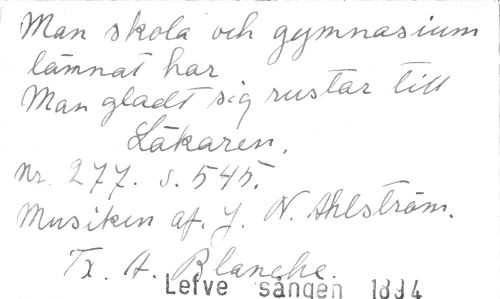 Man skola och gymnasium
lämnat har
Man gladt sig rustar till
Läkaren.
Nr. 277. s. 545.
Musiken af. J. N. Ahlström.
Tx. A. Blanche.
Lefve sången 1894